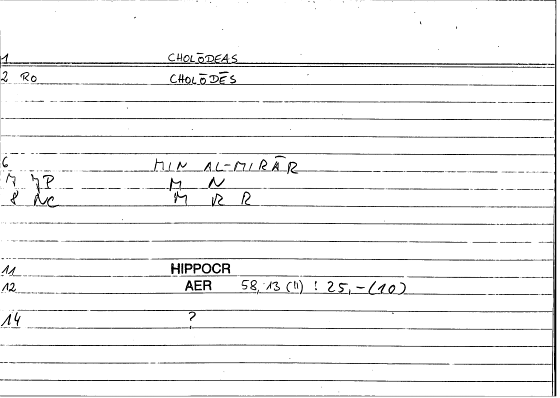 1 CHOLŌDEAS
2 RO CHOLŌDĒS
6 MIN AL-MIRĀR
7 YP M N
8 NC M R R
11 HIPPOCR
12 AER 58, 13 (11) : 25,-(10)
14 ?